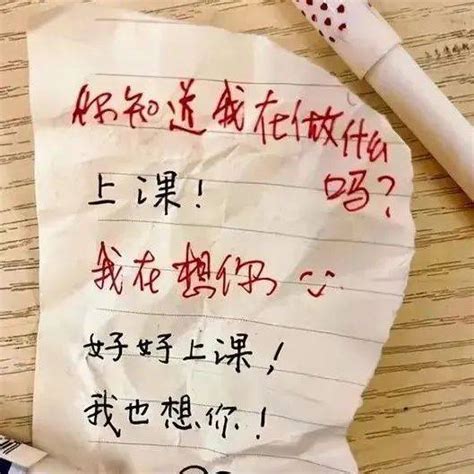 你知道我在做什么
吗？
上课！
我在想你
好好上课！
我也想你！